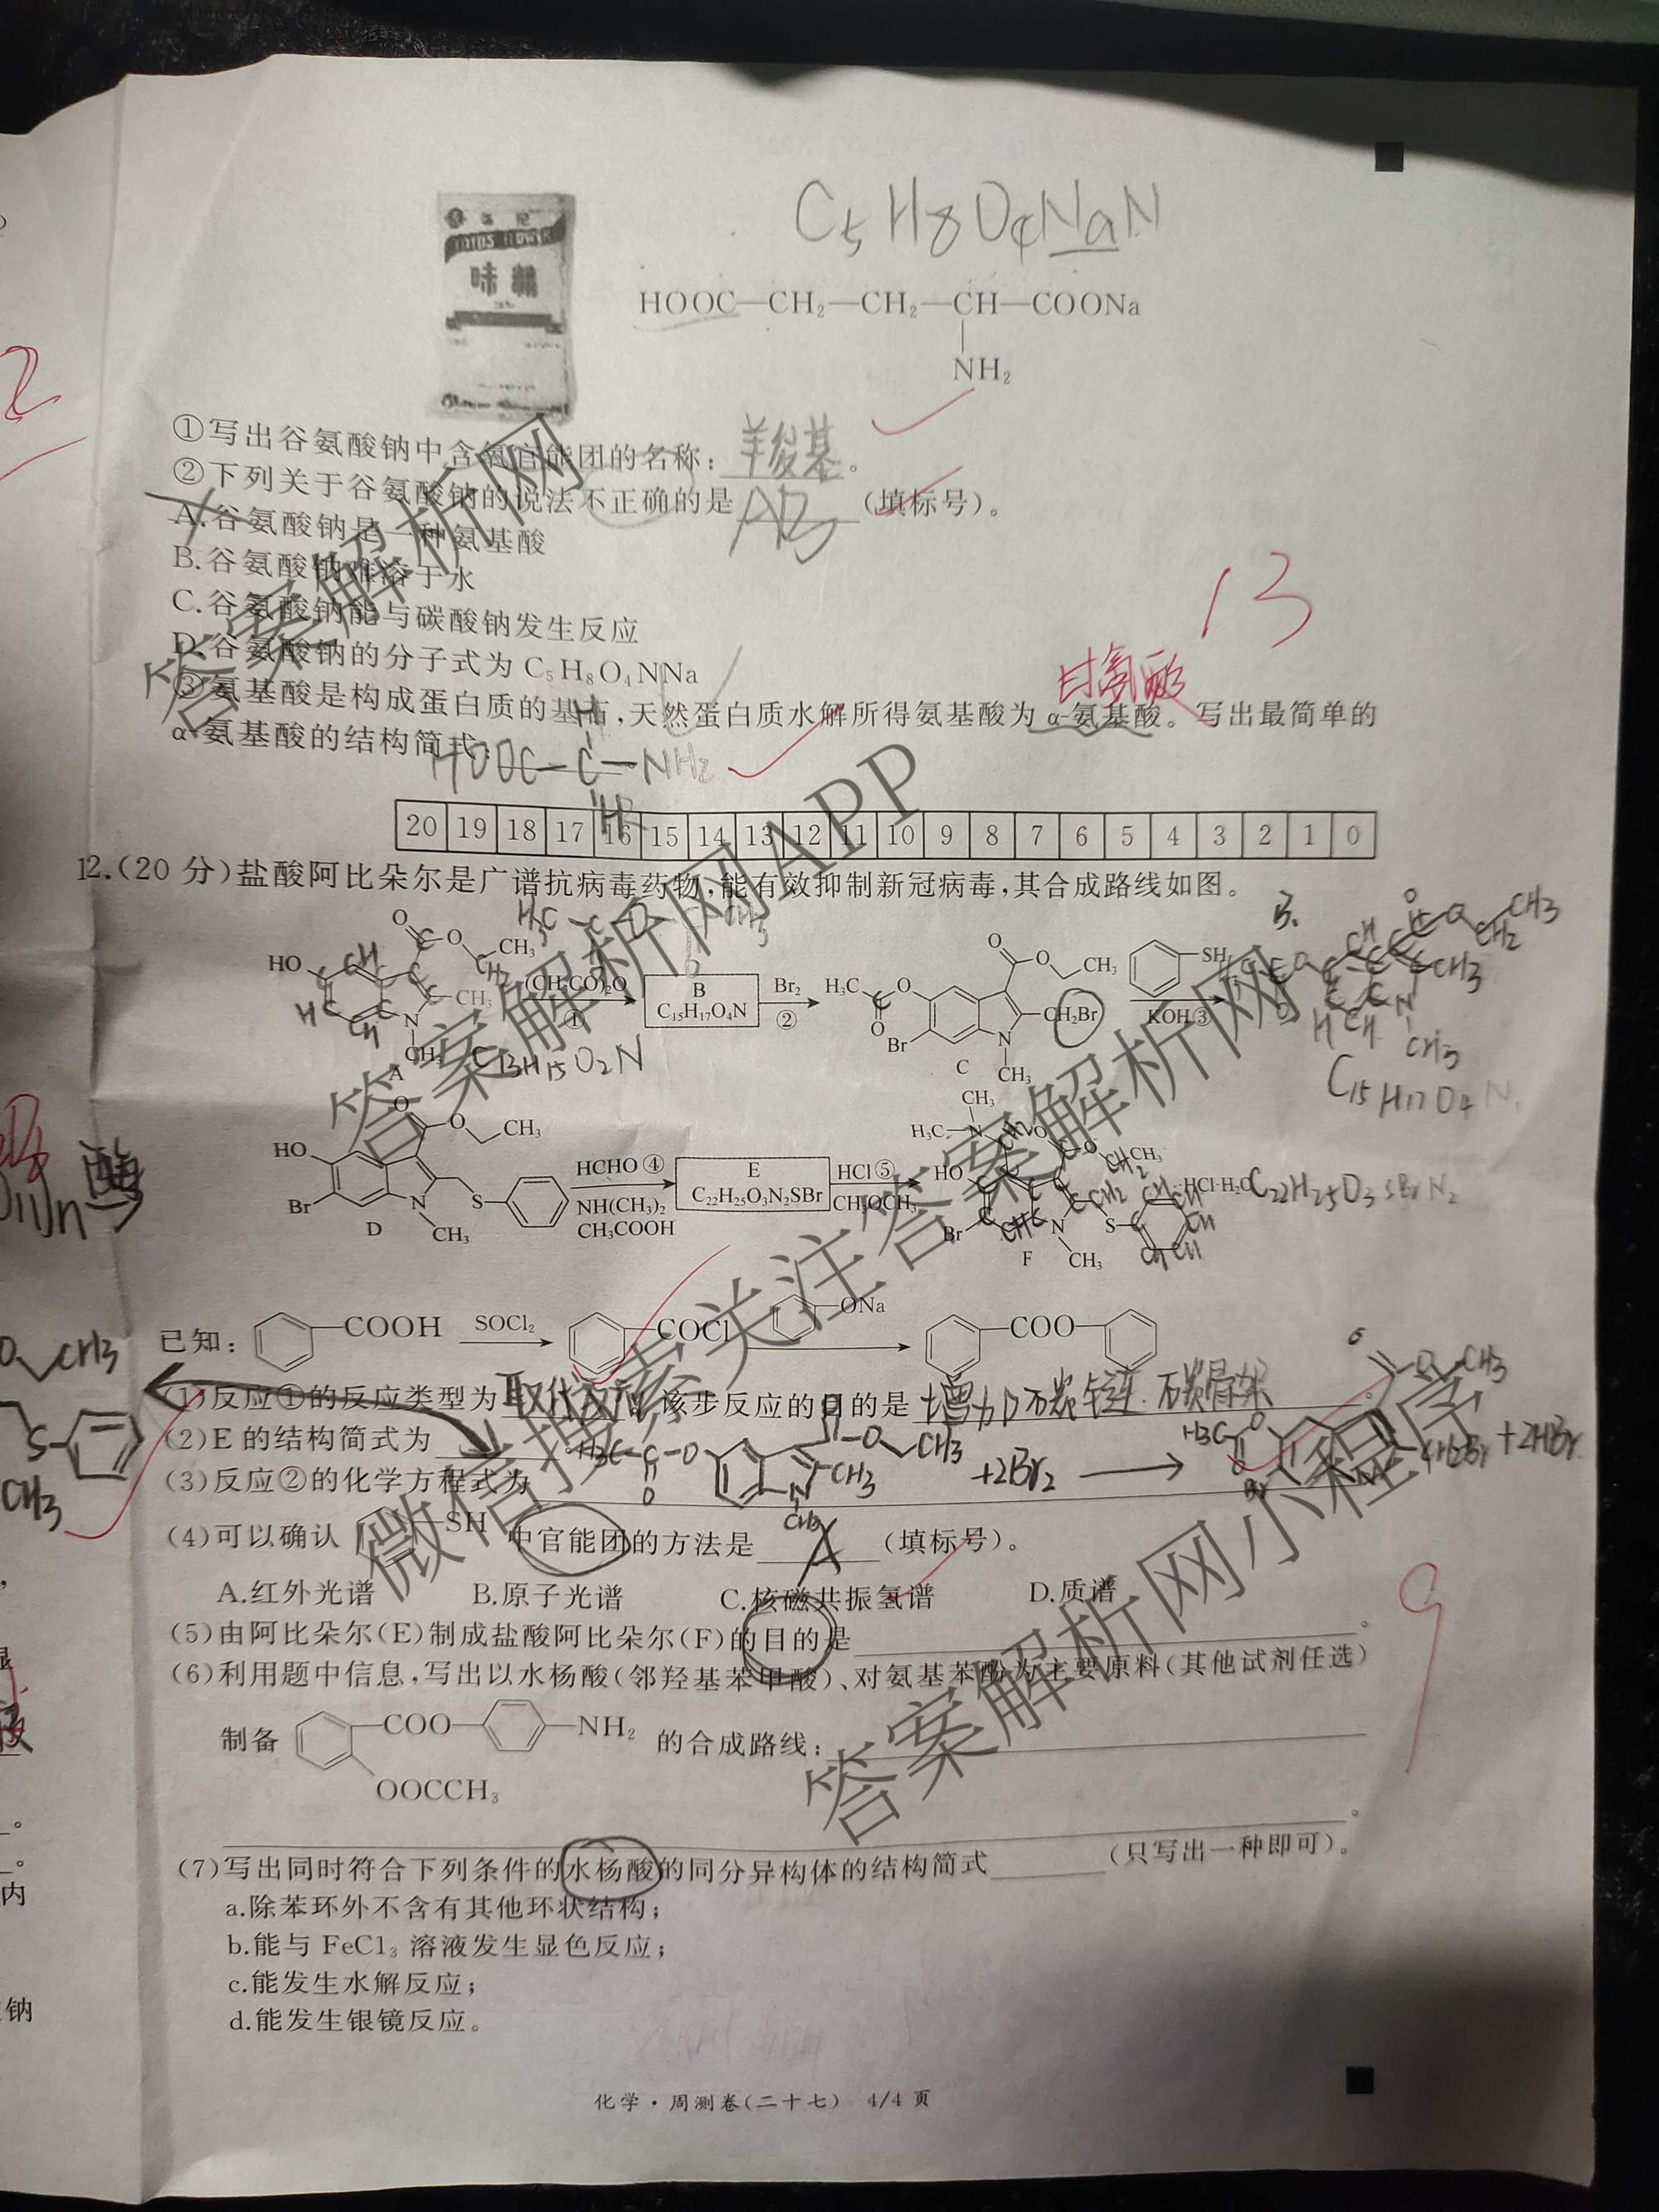 C₅H₈O₄NaN
味精
HOOC—CH₂—CH₂—CH—COONa
NH₂
①写出谷氨酸钠中含氧官能团的名称：羊梭基。
②下列关于谷氨酸钠的说法不正确的是AB（填标号）。
A.谷氨酸钠是一种氨基酸
B.谷氨酸钠难溶于水
C.谷氨酸钠能与碳酸钠发生反应
D.谷氨酸钠的分子式为C₅H₈O₄NNa
13
甘氨酸
③氨基酸是构成蛋白质的基石,天然蛋白质水解所得氨基酸为α-氨基酸。写出最简单的
α-氨基酸的结构简式：HOOC—C—NH₂
H
H
20 19 18 17 16 15 14 13 12 11 10 9 8 7 6 5 4 3 2 1 0
12.(20分)盐酸阿比朵尔是广谱抗病毒药物,能有效抑制新冠病毒,其合成路线如图。
HO O O CH₃ CH₃ N CH₃ A
(CH₃CO)₂O ①
B C₁₅H₁₇O₄N
Br₂ ②
H₃C O O Br O O CH₃ CH₂Br N CH₃ C
SH KOH ③
C₁₃H₁₅O₂N
C₁₅H₁₇O₄N
HO Br O O CH₃ N CH₃ S D
HCHO ④ NH(CH₃)₂ CH₃COOH
E C₂₂H₂₅O₃N₂SBr
HCl ⑤ CH₃OCH₃
CH₃ H₃C—N HO Br O O CH₃ N S CH₃ F ·HCl·H₂O
C₂₂H₂₅O₃SBrN₂
已知： —COOH SOCl₂ —COCl —ONa —COO—
(1)反应①的反应类型为取代反应 该步反应的目的是增加石炭链 石炭骨架
(2)E的结构简式为
(3)反应②的化学方程式为
H₃C—C—O— —O CH₃ —CH₃ N CH₃ +2Br₂ → H₃C O Br CH₂Br +2HBr
(4)可以确认 —SH 中官能团的方法是 A （填标号）。
A.红外光谱 B.原子光谱 C.核磁共振氢谱 D.质谱
(5)由阿比朵尔(E)制成盐酸阿比朵尔(F)的目的是。
(6)利用题中信息,写出以水杨酸(邻羟基苯甲酸)、对氨基苯酚为主要原料(其他试剂任选)
制备 —COO— —NH₂ 的合成路线：
OOCCH₃
。
9
(7)写出同时符合下列条件的水杨酸的同分异构体的结构简式（只写出一种即可）。
a.除苯环外不含有其他环状结构；
b.能与FeCl₃溶液发生显色反应；
c.能发生水解反应；
d.能发生银镜反应。
化学·周测卷(二十七) 4/4页
2
酶
O CH₃
S
CH₃
内
钠
答案解析网
答案解析网APP
微信搜索关注答案解析网
答案解析网小程序